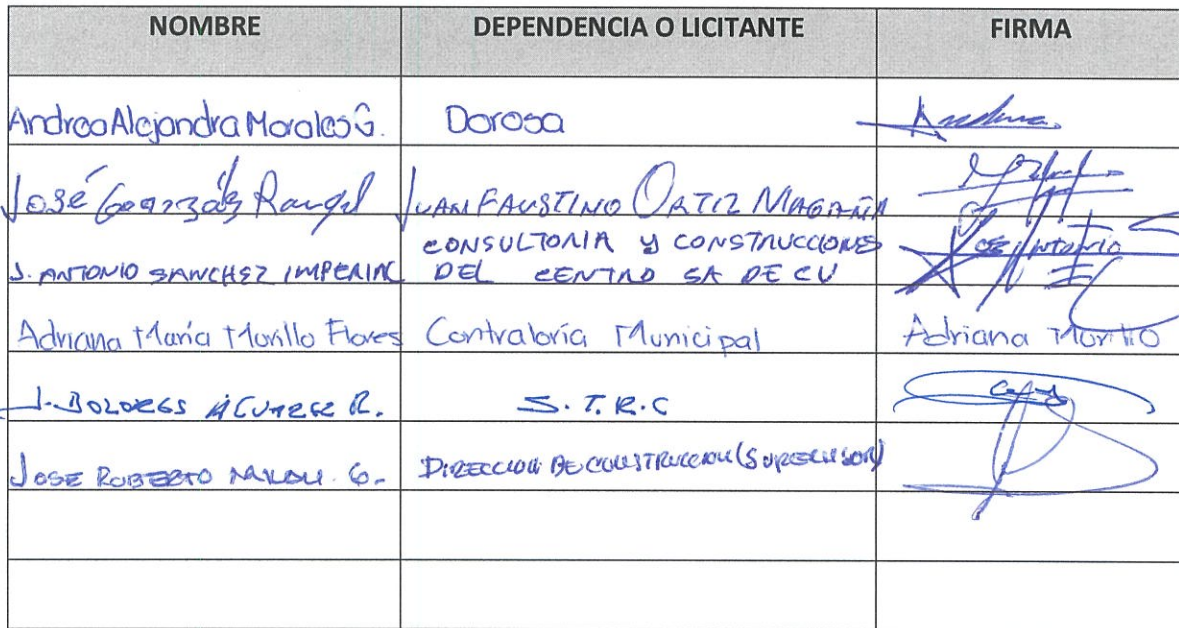 NOMBRE DEPENDENCIA O LICITANTE FIRMA
Andrea Alejandra Morales G. Dorosa
José González Rangel JUAN FAUSTINO ORTIZ MAGAÑA
CONSULTORIA Y CONSTRUCCIONES
J. ANTONIO SANCHEZ IMPERIAL DEL CENTRO SA DE CV José Antonio
Adriana María Morillo Flores Contraloría Municipal Adriana Morillo
J. DOLORES R. S.T.R.C
JOSE ROBERTO G. DIRECCION DE CONSTRUCCION (SUPERVISOR)